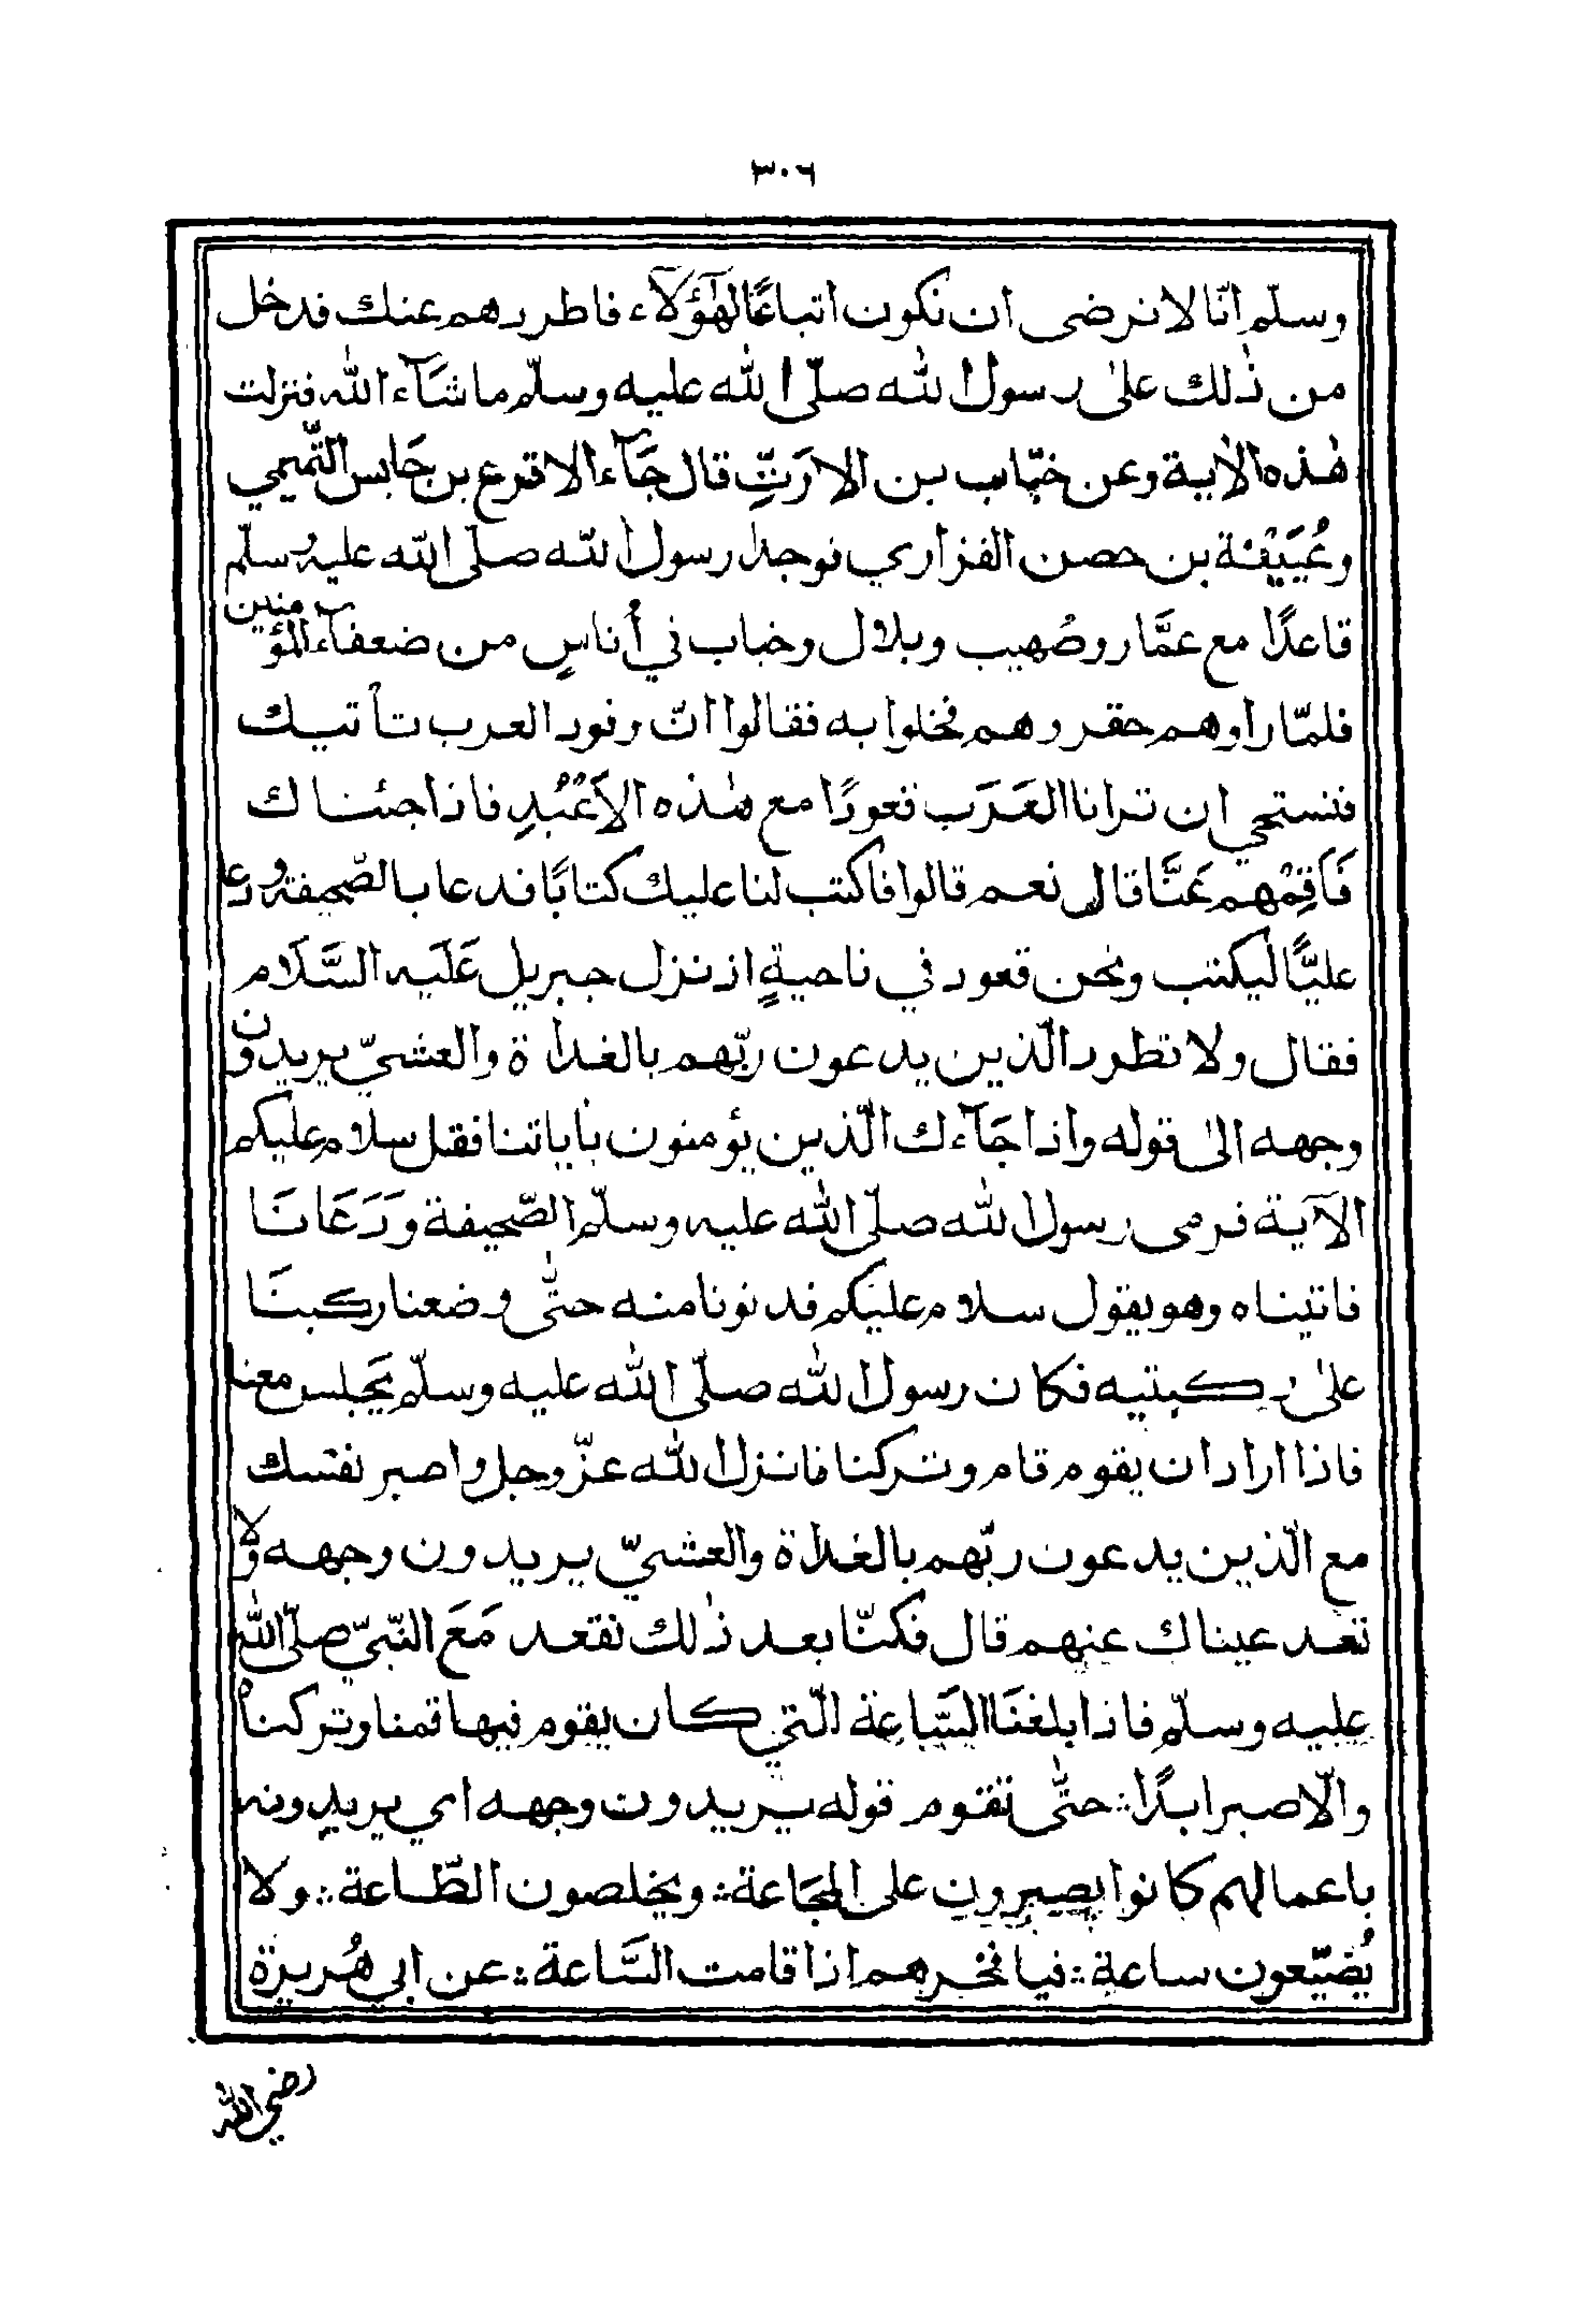 ٣٠٦
وسلّم انّا لا نرضى ان نكون اتباعًا لهٰؤلآء فاطردهم عنك فدخل
من ذٰلك علىٰ رسول الله صلّى الله عليه وسلّم ما شآء الله فنزلت
هٰذه الاٰية وعن خبّاب بن الارَتِّ قال جَآء الاقرع بن حَابس التّميمي
وعُيَيْنة بن حصن الفزاري فوجدا رسول الله صلّى الله عليه وسلّم
قاعدًا مع عمَّار وصُهيب وبلال وخباب في أُناسٍ من ضعفآء المؤمنين
فلمّا راوهم حقروهم فخلوا به فقالوا انّ وفود العرب تأتيك
فنستحي ان ترانا العَرَب قعودًا مع هٰذه الاَعْبُدِ فاذا جئناك
فَاَقِمْهم عَنَّا قال نعم قالوا فاكتب لنا عليك كتابًا فدعا بالصّحيفة ودعا
عليًّا ليكتب ونحن قعود في ناحيةٍ اذ نزل جبريل عَلَيه السَّلَام
فقال ولا تطرد الّذين يدعون ربّهم بالغداة والعشيّ يريدون
وجهه الىٰ قوله واذا جَآءك الّذين يؤمنون بأياتنا فقل سلام عليكم
الآية فرمى رسول الله صلّى الله عليه وسلّم الصّحيفة وَدَعَانَا
فاتيناه وهو يقول سلام عليكم فدنونا منه حتّٰى وضعنا ركبنَا
علىٰ ركبتيه فكان رسول الله صلّى الله عليه وسلّم يَجلس معنا
فاذا اراد ان يقوم قام وتركنا فانزل الله عزّوجل واصبر نفسك
مع الّذين يدعون ربّهم بالغداة والعشيّ يريدون وجهه ولا
تعد عيناك عنهم قال فكنّا بعد ذٰلك نقعد مَعَ النّبيّ صلّى الله
عليه وسلّم فاذا بلغنَا السَّاعة الّتي كان يقوم فيها قمنا وتركناه
والّا صبر ابدًا ؞ حتّٰى نقوم قوله يريدون وجهه اي يريدونه
باعمالهم كانوا يصبرون على المجَاعة ؞ ويخلصون الطّاعة ؞ ولا
يُضيّعون ساعة ؞ فيا فخرهم اذا قامت السَّاعة ؞ عن ابي هُريرة
رضي الله